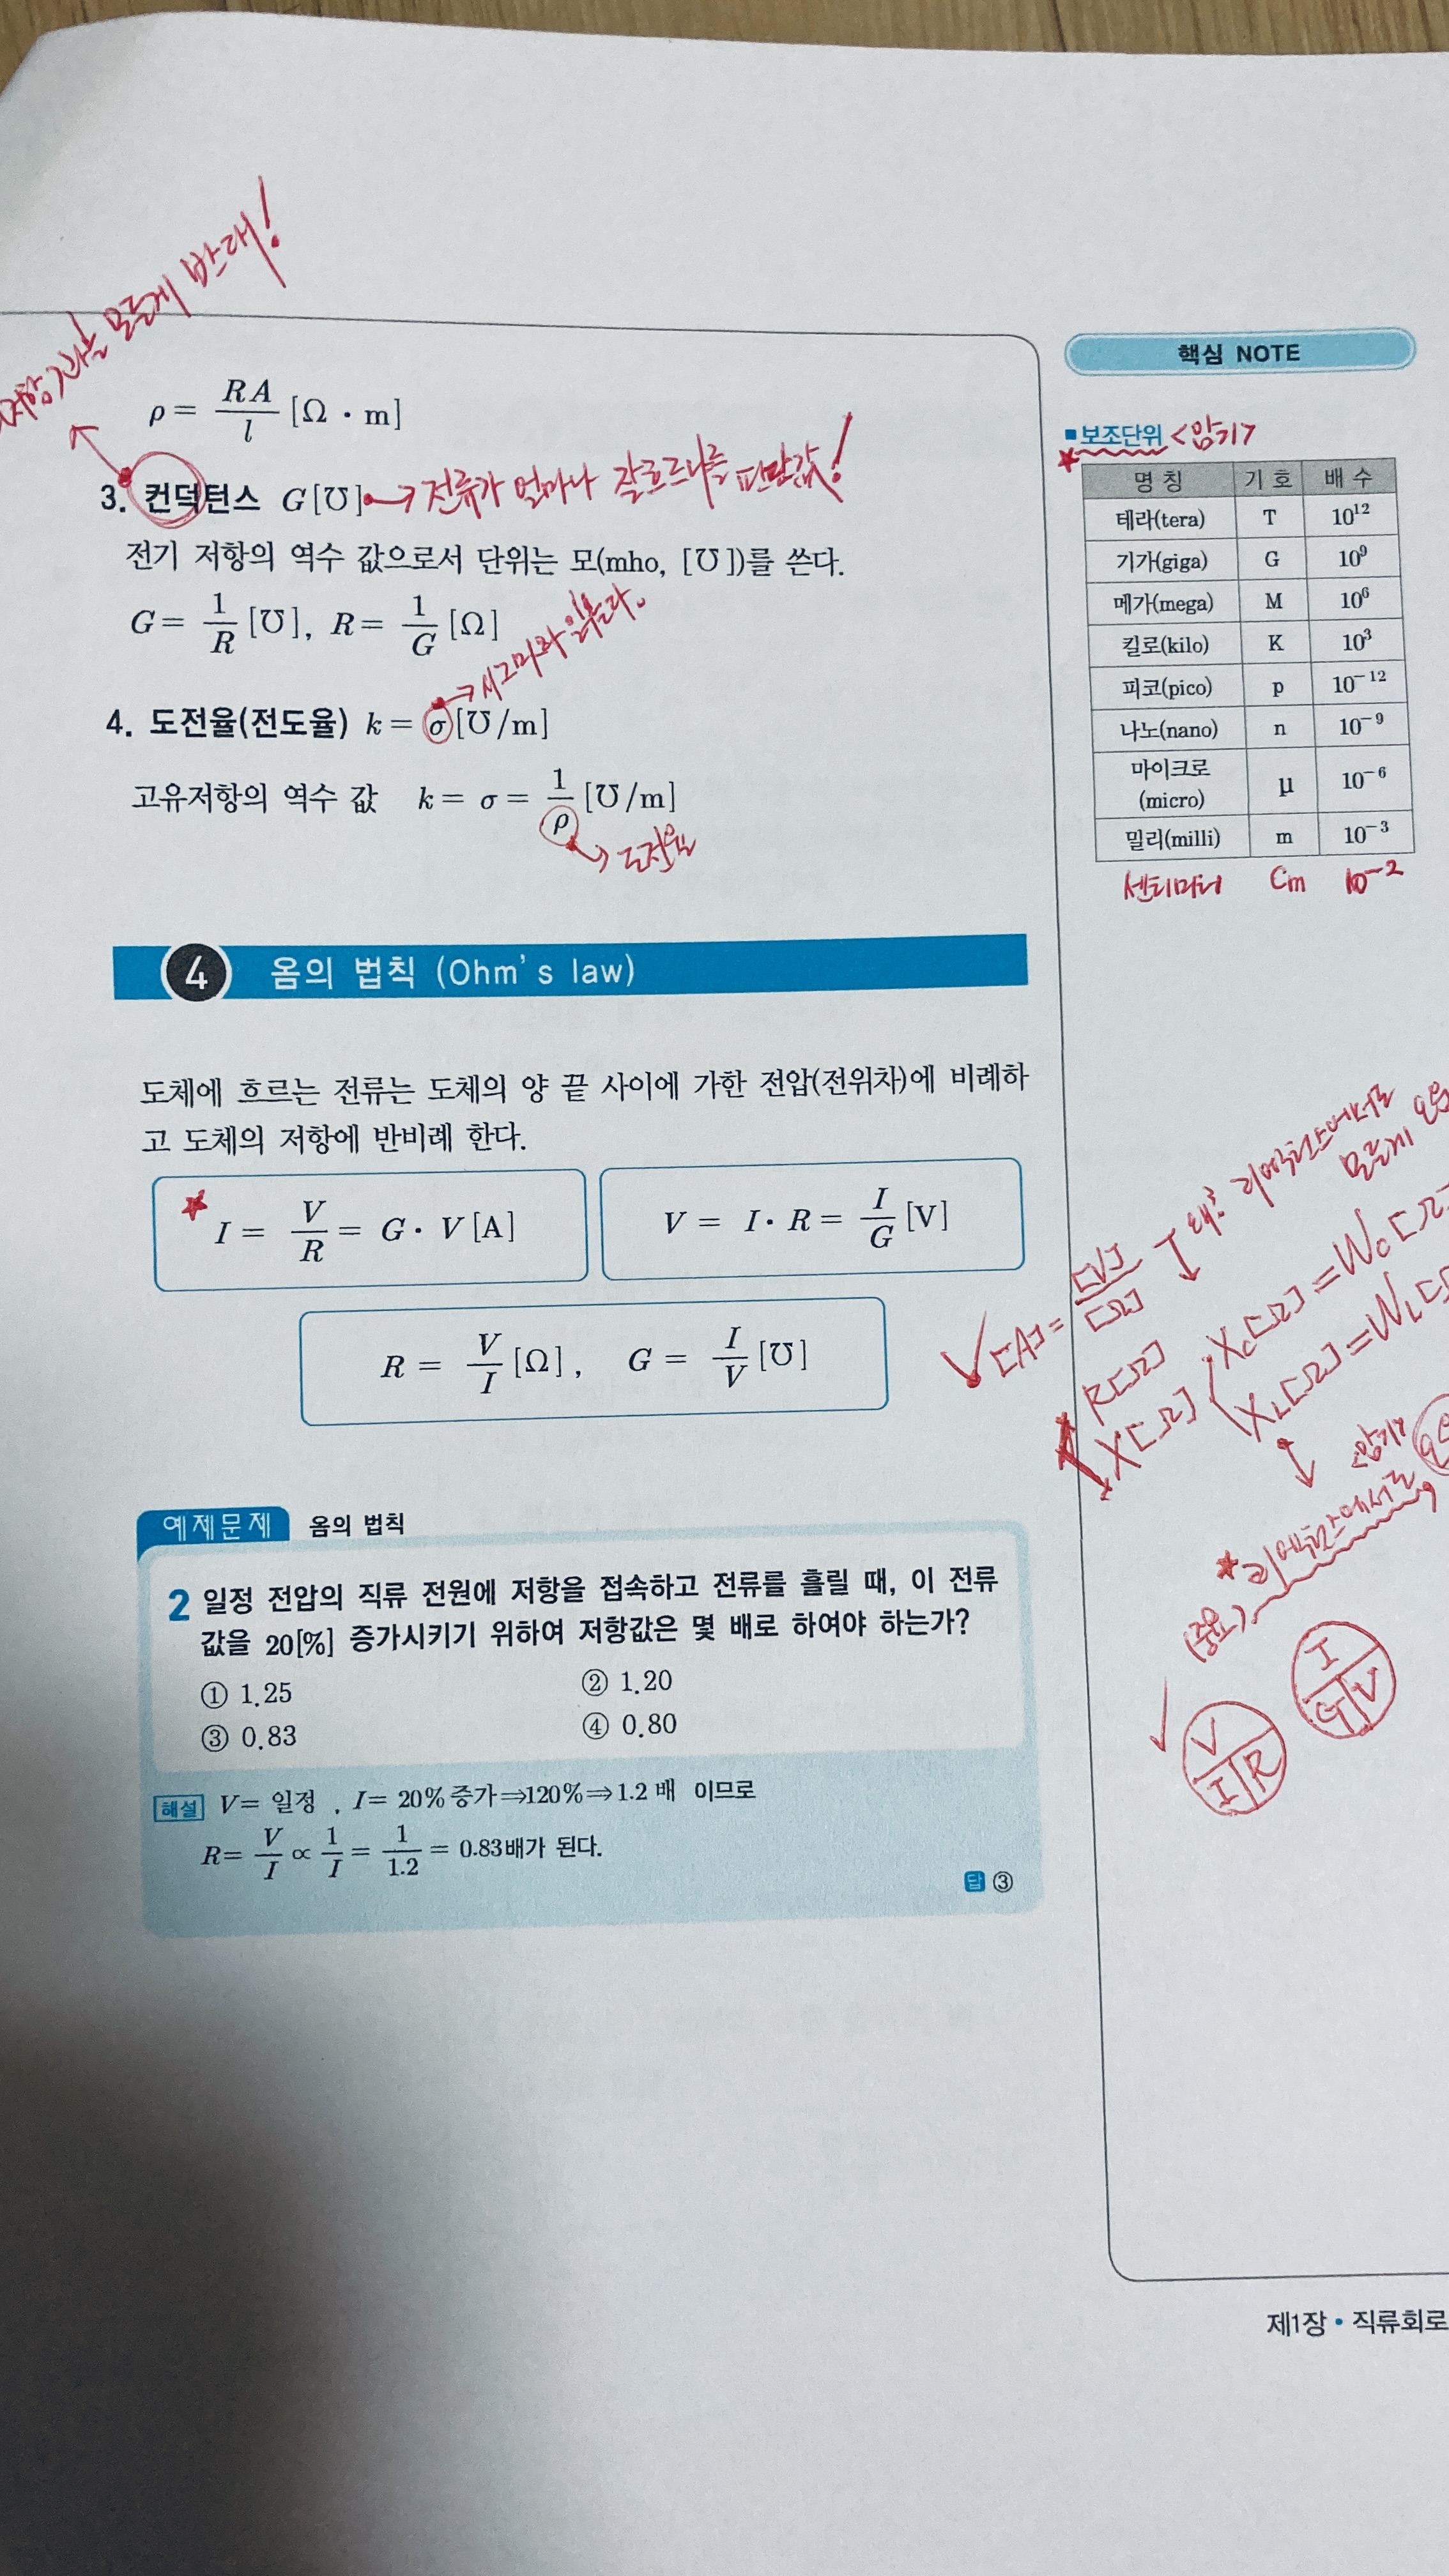 저항과는 모든게 반대!
ρ = RA/l [Ω · m]
3. 컨덕턴스 G[℧] → 전류가 얼마나 잘흐르나를 판단값!
전기 저항의 역수 값으로서 단위는 모(mho, [℧])를 쓴다.
G = 1/R [℧], R = 1/G [Ω]
→ 시그마라 읽는다.
4. 도전율(전도율) k = σ[℧/m]
고유저항의 역수 값 k = σ = 1/ρ [℧/m]
→ 도전율
4 옴의 법칙 (Ohm's law)
도체에 흐르는 전류는 도체의 양 끝 사이에 가한 전압(전위차)에 비례하
고 도체의 저항에 반비례 한다.
★ I = V/R = G · V [A]
V = I · R = I/G [V]
R = V/I [Ω], G = I/V [℧]
예제문제 옴의 법칙
2 일정 전압의 직류 전원에 저항을 접속하고 전류를 흘릴 때, 이 전류
값을 20[%] 증가시키기 위하여 저항값은 몇 배로 하여야 하는가?
① 1.25 ② 1.20
③ 0.83 ④ 0.80
해설 V = 일정 , I = 20% 증가⇒120%⇒1.2 배 이므로
R = V/I ∝ 1/I = 1/1.2 = 0.83배가 된다.
답 ③
핵심 NOTE
■ 보조단위 <암기>
★
명 칭 기 호 배 수
테라(tera) T 10¹²
기가(giga) G 10⁹
메가(mega) M 10⁶
킬로(kilo) K 10³
피코(pico) p 10⁻¹²
나노(nano) n 10⁻⁹
마이크로
(micro) μ 10⁻⁶
밀리(milli) m 10⁻³
센티미터 Cm 10⁻²
리액턴스에서로
모든게
[A] = [V]/[Ω]
R[Ω]
X[Ω]
Xc[Ω] = Wc[Ω]
XL[Ω] = WL
<암기>
★ 리액턴스에서로
(중요)
I
G V
V
I R
제1장 • 직류회로